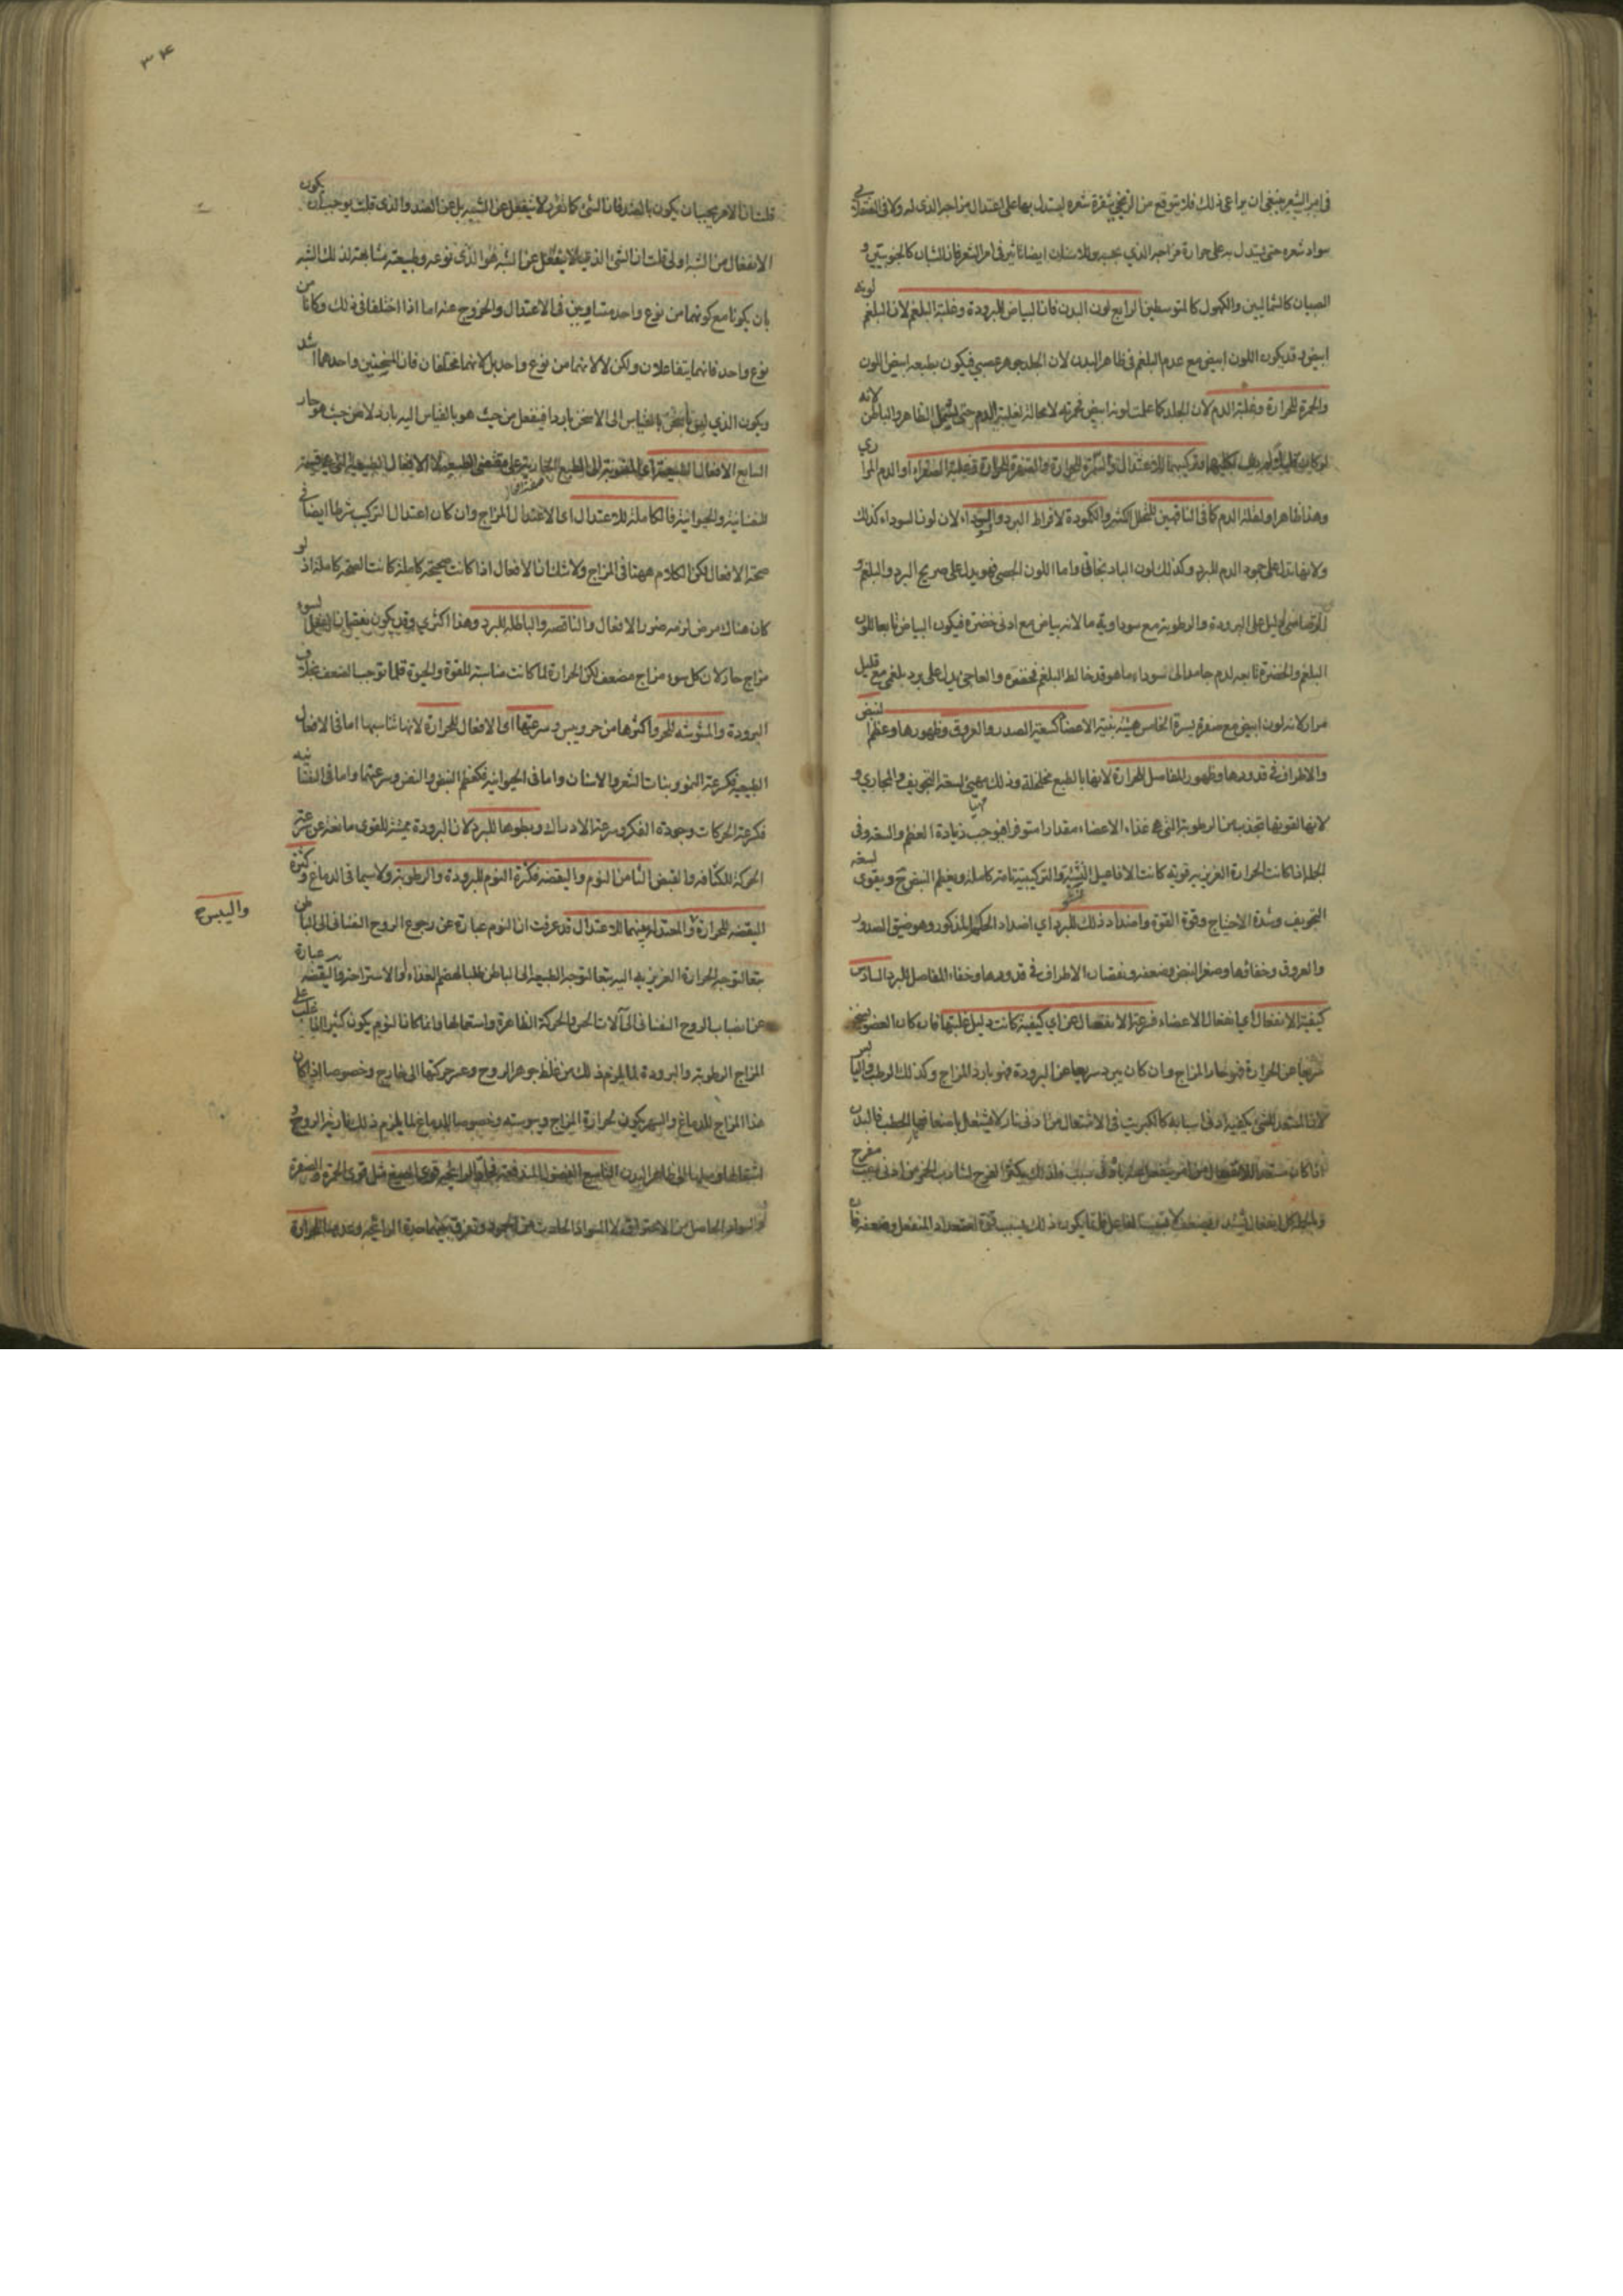 في امر الشعر فينبغي ان يراعى ذلك فلا يتوقع من الزنجي شقرة شعره ليستدل بها على اعتدال مزاجه الذي له ولا في الصقلابي
سواد شعره حتى يستدل به على حرارة مزاجه الذي بحسبه وللاسنان ايضا تاثير في امر الشعر فان الشبان كالجنوبيين و
الصبيان كالشماليين والكهول كالمتوسطين الرابع لون البدن فان البياض للبرودة وغلبة البلغم لان البلغم لونه
ابيض وقد يكون اللون ابيض مع عدم البلغم في ظاهر البدن لان الجلد جوهر عصبي فيكون بطبعه ابيض اللون
والحمرة للحرارة وغلبة الدم لان الجلد كما علمت لونه ابيض فحمرته لا محالة لغلبة الدم حتى يشمل الظاهر والباطن لانه
للاعتدال والسمرة للحرارة والصفرة للحرارة وغلبة الصفراء او الدم المراري
وهذا ظاهر او لقلة الدم كما في الناقهين للتحلل الكثير والكمودة لافراط البرد والسوداء لان لون السوداء كذلك
ولانها تدل على جمود الدم للبرد وكذلك لون الباذنجاني واما اللون الجصي فهو يدل على صريح البرد والبلغم و
الرصاصي دليل على البرودة والرطوبة مع سوداوية ما لانه بياض مع ادنى خضرة فيكون البياض تابعا للون
البلغم والخضرة تابعه لدم جامد الى السوداء ما هو قد خالط البلغم فخضره والعاجي يدل على برد بلغمي مع قليل
مرار لانه لون ابيض مع صفرة يسيرة الخامس هيئة بنية الاعضا كسعة الصدر والعروق وظهورها وعظم النبض
والاطراف في قدودها وظهور المفاصل للحرارة لانها بالطبع مخلخلة وذلك يهيئ لسعة التجويف والمجاري و
لانها لقوتها تجذب من الرطوبة التي هي غذاء الاعضاء مقدارا متوفرا فيوجب زيادة العظم والسعة وفي
الجملة اذا كانت الحرارة الغريزية قوية كانت الافاعيل النشية والتركيبية تامة كاملة ويعظم النبض ح ويقوى لسعة
التجويف وشدة الاحتياج وقوة القوة واضداد ذلك للبرد اي اضداد الحكم المذكور وهو ضيق الصدور
والعروق وخفائها وصغر النبض وضعفه ونقصان الاطراف في قدودها وخفاء المفاصل للبرد السادس
كيفية الانفعال اي انفعال الاعضاء فسرعة الانفعال عن اي كيفية كانت دليل غلبتها فان كان العضو يسخن
سريعا عن الحرارة فهو حار المزاج وان كان يبرد سريعا عن البرودة فهو بارد المزاج وكذلك الرطب واليابس
لان المستعد للشئ يكفيه ادنى اسبابه كالكبريت في الاشتعال من ادنى نار لا يشتعل باضعافها الحطب فالبدن
اذا كان مستعدا للانفعال من امر ينفعل عنه بادنى سبب فلذلك يكثر الفرح لشارب الخمر من ادنى سبب مفرح
قلت ان الامر يجب ان يكون بالضد فان الشئ كما تقرر لا ينفعل عن الشبيه بل عن الضد والذي قلت يوجب ان يكون
الانفعال من الشبه اولى قلت ان الشئ الذي لا ينفعل عن الشبه هو الذي نوعه وطبيعته مشابهة لذلك الشبه
بان يكونا مع كونهما من نوع واحد متساويين في الاعتدال والخروج عنه اما اذا اختلفا في ذلك وكانا من
نوع واحد فانهما يتفاعلان ولكن لا لانهما من نوع واحد بل لانهما مختلفان فان المسخنين واحدهما اشد
ويكون الذي ليس باسخن بالقياس الى الاسخن باردا فينفعل من حيث هو بالقياس اليه بارد لا من حيث هو حار
السابع الافعال الطبيعية
النفسانية والحيوانية فالكاملة للاعتدال اي لاعتدال المزاج وان كان اعتدال التركيب شرطا ايضا في
صحة الافعال لكن الكلام ههنا في المزاج ولا شك ان الافعال اذا كانت صحيحة كاملة كانت الصحة كاملة اذ لو
كان هناك مرض لزمه ضرر الافعال والناقصه والباطله للبرد وهذا اكثري وقد يكون نقصان الفعل لسوء
مزاج حار لان كل سوء مزاج مضعف لكن الحرارة لما كانت مناسبة للقوة والحيوة قلما توجب الضعف بخلاف
البرودة والمشوشه للحر واكثرها من حر ويبس وسرعتها اي الافعال للحرارة لانها تناسبها اما في الافعال
الطبيعية فكسرعة النمو ونبات الشعر والاسنان واما في الحيوانية فكعظم النبض والنفس وسرعتهما واما في النفسانيه
فكسرعة الحركات وجودة الفكر وسرعة الادراك وبطوءها للبرد لان البرودة مميتة للقوى مانعة عن سرعة
الحركة للكثافة والقبض الثامن النوم واليقضه فكثرة النوم للبرودة والرطوبة ولا سيما في الدماغ وكثرة
اليقضه للحرارة والمعتدل بينهما للاعتدال قد عرفت ان النوم عبارة عن رجوع الروح النفساني الى الباطن
واليبس ح
تبعا لتوجه الحرارة الغريزيه اليه تبعا لتوجه الطبيعة الى الباطن طلبا لهضم الغذاء او الاستراحة واليقضه عبارة
عن انصباب الروح النفساني الى آلات الحس والحركة الظاهرة واستعمالها وانما كان النوم يكون كثيرا لغالب على
المزاج الرطوبة والبرودة لما يلزم ذلك من غلظ جوهر الروح وعسر حركتها الى خارج وخصوصا اذا كان
هذا المزاج للدماغ والسهر يكون لحرارة المزاج ويبوسته وخصوصا للدماغ لما يلزم ذلك من نارية الروح و
اشتعالها وميلها الى ظاهر البدن التاسع الفضول المندفعة